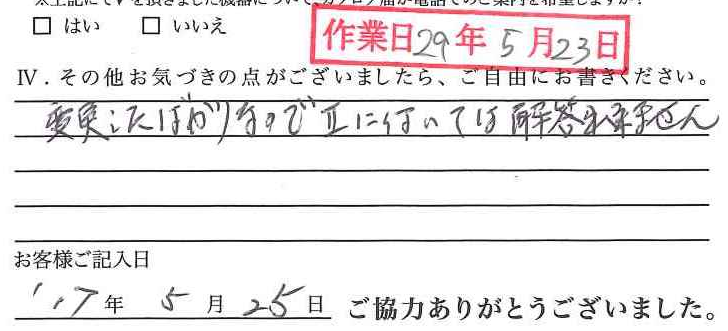 □ はい □ いいえ
作業日29年5月23日
Ⅳ．その他お気づきの点がございましたら、ご自由にお書きください。
変更したばかりなので Ⅱに付いては解答出来ません
お客様ご記入日
'17年 5月25日 ご協力ありがとうございました。